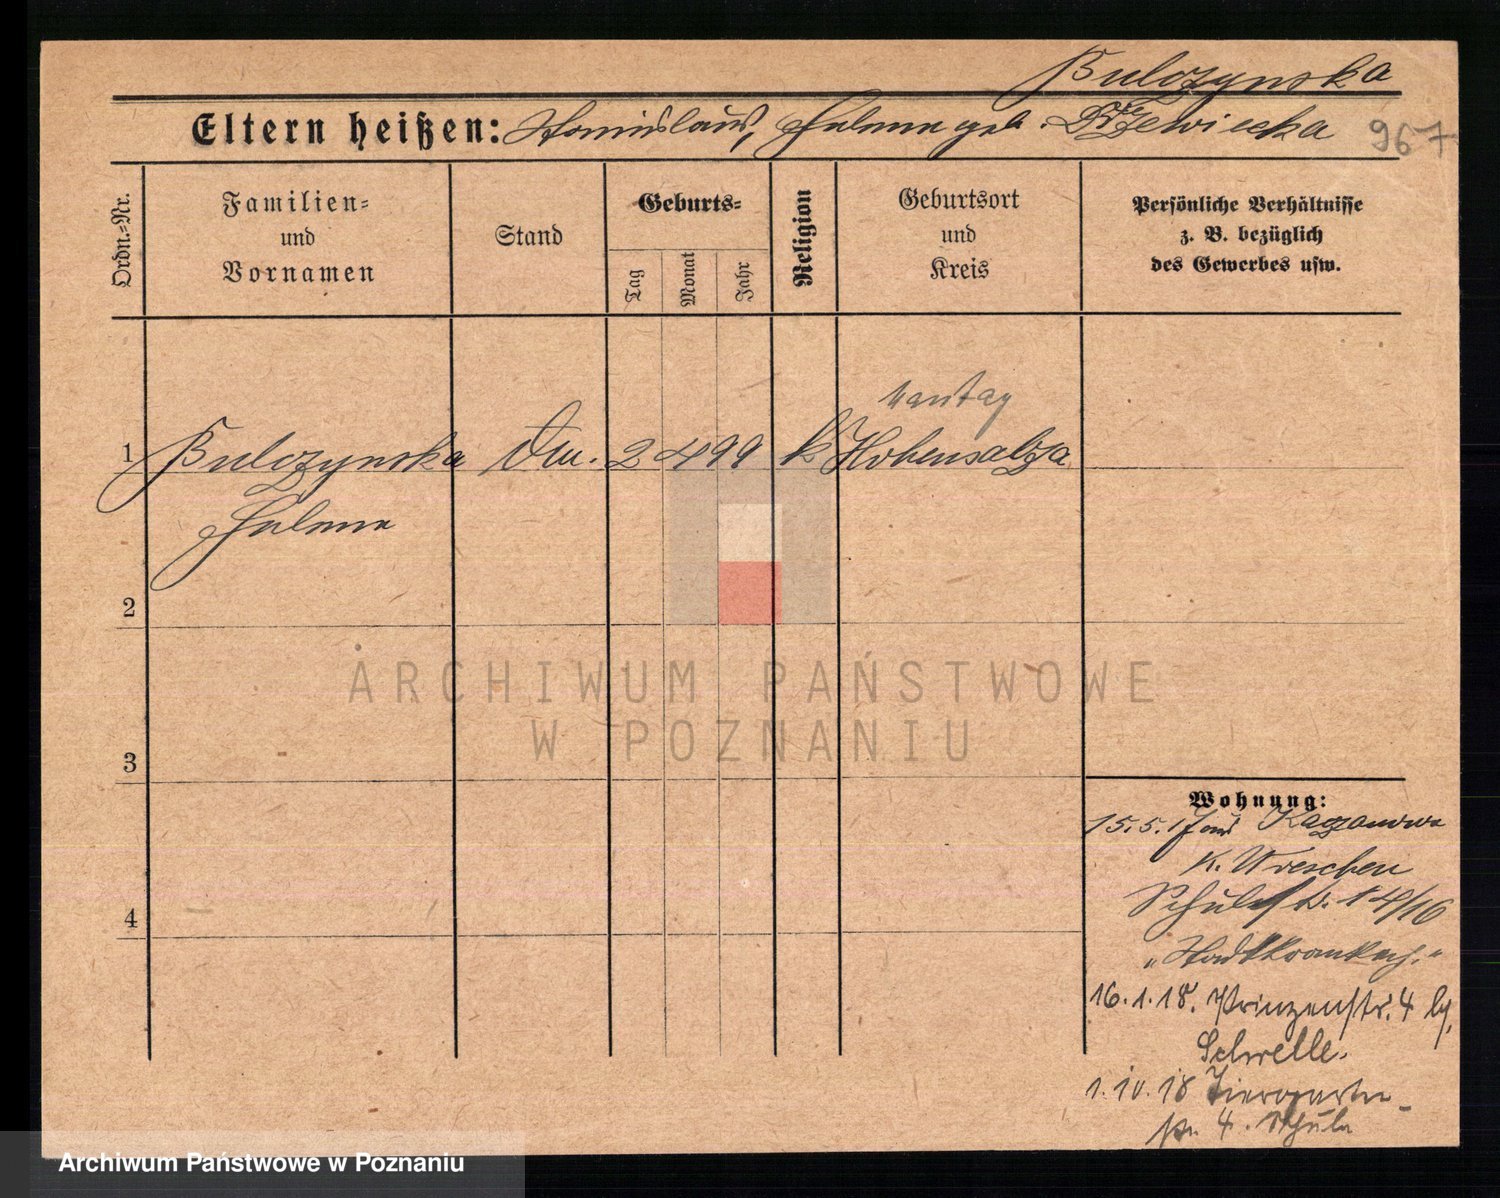 Bulczynska
Eltern heißen: Stanislaus, Helene geb. Drzewiecka 967
Ordn.-Nr.
Familien-
und
Vornamen
Stand
Geburts-
Tag
Monat
Jahr
Religion
Geburtsort
und
Kreis
Persönliche Verhältnisse
z. B. bezüglich
des Gewerbes usw.
1 Bulczynska 2 4 99 k Hohensalza
Helene
2
3
4
Wohnung:
15.5.17 aus
K. Wreschen
Schulstr. 14/16
„Stadtkrankh.“
16.1.18. Prinzenstr. 4 bj.
Schwelle.
1.10.18 Tiergarten-
str. 4. Schule
ARCHIWUM PAŃSTWOWE
W POZNANIU
Archiwum Państwowe w Poznaniu